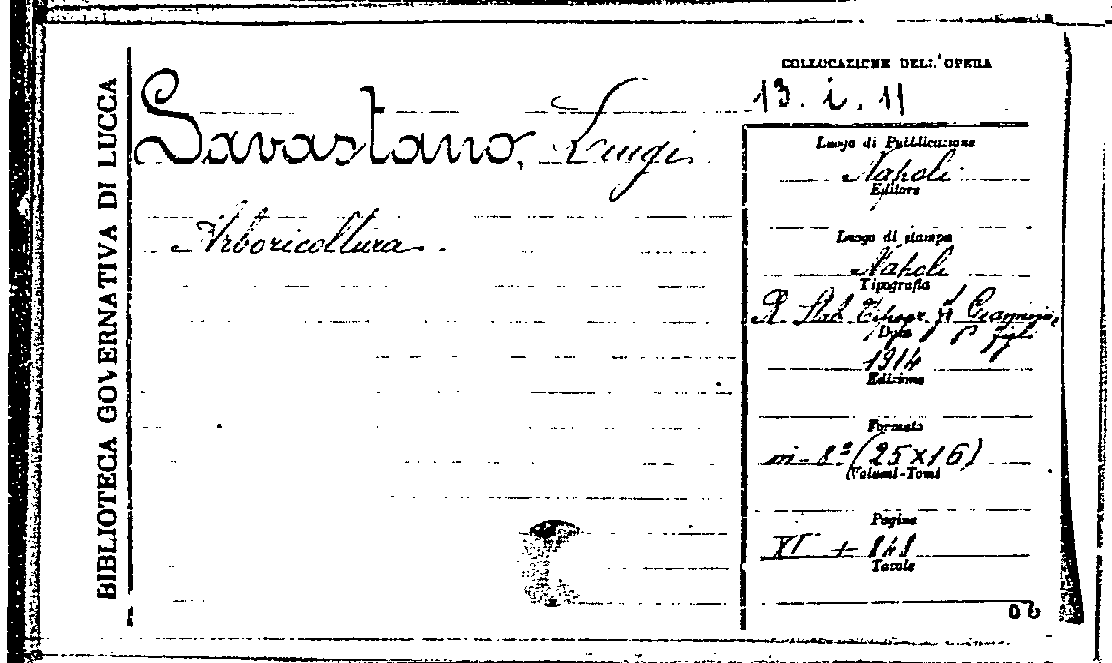 BIBLIOTECA GOVERNATIVA DI LUCCA
Savastano, Luigi
Arboricoltura.
COLLOCAZIONE DELL'OPERA
13. i. 11
Luogo di Pubblicazione
Napoli
Editore
Luogo di stampa
Napoli
Tipografia
R. Stab. Tipogr. F.
Data
1914
Edizione
Formato
in-8º (25x16)
Volumi-Tomi
Pagine
XI + 848
Tavole